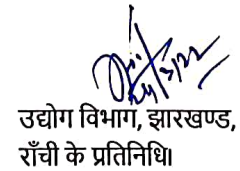 उद्योग विभाग, झारखण्ड,
राँची के प्रतिनिधि।